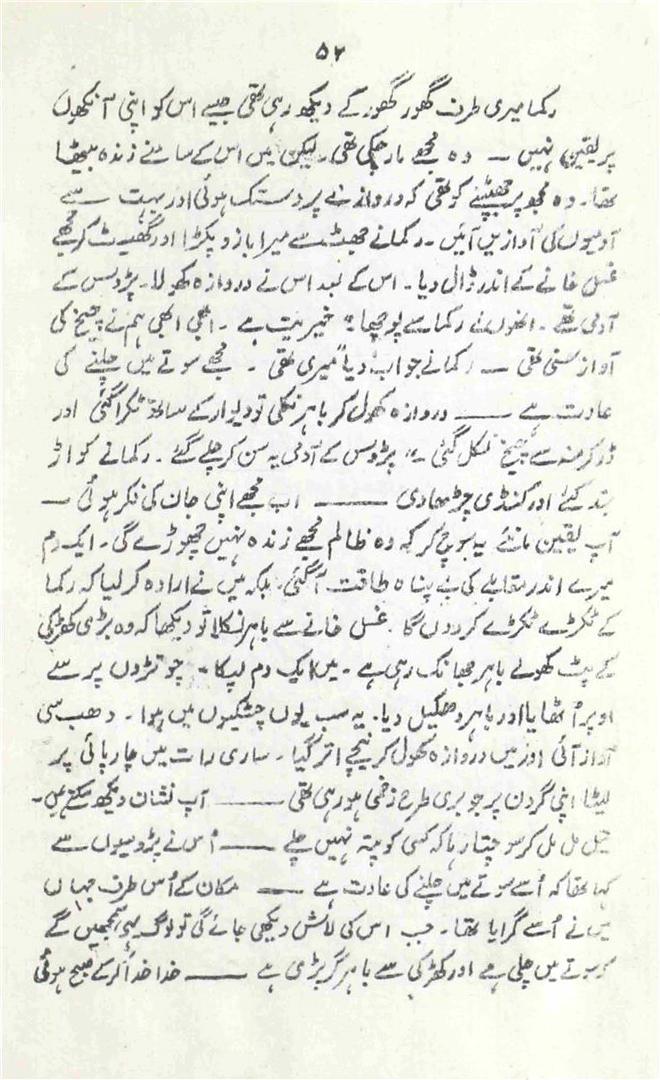 ۵۲
رکما میری طرف گھور گھور کے دیکھ رہی تھی جیسے اس کو اپنی آنکھوں
پر یقین نہیں — وہ مجھے مار چکی تھی۔ لیکن میں اس کے سامنے زندہ بیٹھا
تھا۔ وہ مجھ پر جھپٹنے کو تھی کہ دروازے پر دستک ہوئی اور بہت سے
آدمیوں کی آوازیں آئیں۔ رکما نے جھٹ سے میرا بازو پکڑا اور گھسیٹ کر مجھے
غسل خانے کے اندر ڈال دیا۔ اس کے بعد اس نے دروازہ کھولا۔ پڑوس کے
آدمی تھے۔ انھوں نے رکما سے پوچھا: "خیریت ہے۔ ابھی ابھی ہم نے چیخ کی
آواز سنی تھی — رکما نے جواب دیا "میری تھی۔ مجھے سوتے میں چلنے کی
عادت ہے —— دروازہ کھول کر باہر نکلی تو دیوار کے ساتھ ٹکرا گئی اور
ڈر کر منہ سے چیخ نکل گئی۔" پڑوس کے آدمی یہ سن کر چلے گئے۔ رکما نے کواڑ
بند کئے اور کنڈی چڑھا دی —— اب مجھے اپنی جان کی فکر ہوئی —
آپ یقین مانئے یہ سوچ کر کہ وہ ظالم مجھے زندہ نہیں چھوڑے گی۔ ایک دم
میرے اندر مقابلے کی بے پناہ طاقت آ گئی۔ بلکہ میں نے ارادہ کر لیا کہ رکما
کے ٹکڑے ٹکڑے کر دوں گا۔ غسل خانے سے باہر نکلا تو دیکھا کہ وہ بڑی کھڑکی
کے پٹ کھولے باہر جھانک رہی ہے۔ میں ایک دم لپکا۔ چوتڑوں پر سے
اوپر اُٹھایا اور باہر دھکیل دیا۔ یہ سب یوں چٹکیوں میں ہوا۔ دھب سی
آواز آئی اور میں دروازہ کھول کر نیچے اتر گیا۔ ساری رات میں چارپائی پر
لیٹا اپنی گردن پر جو بری طرح زخمی ہو رہی تھی —— آپ نشان دیکھ سکتے ہیں۔
تیل مل مل کر سوچتا رہا کہ کسی کو پتہ نہیں چلے —— اُس نے پڑوسیوں سے
کہا تھا کہ اُسے سوتے میں چلنے کی عادت ہے —— مکان کے اُس طرف جہاں
میں نے اُسے گرایا تھا۔ جب اس کی لاش دیکھی جائے گی تو لوگ یہی سمجھیں گے
کہ سوتے میں چلی ہے اور کھڑکی سے باہر گر پڑی ہے —— خدا خدا کر کے صبح ہوئی